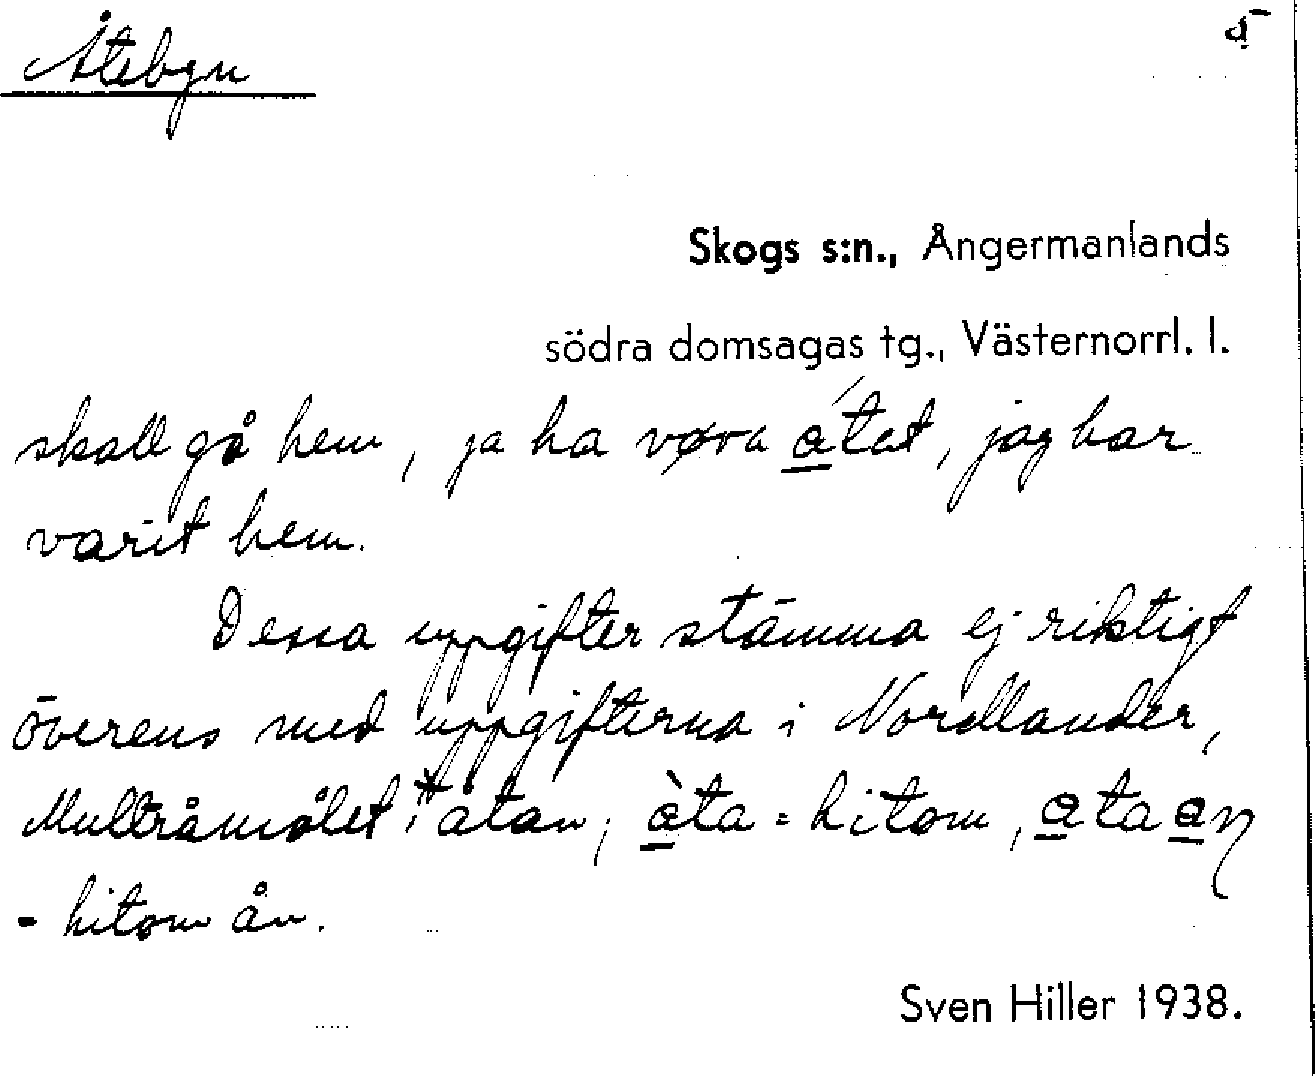 Åtebyn
Skogs s:n., Ångermanlands
södra domsagas tg., Västernorrl. l.
skall gå hem, ja ha vøra a̲tet, jag har
varit hem.
Dessa uppgifter stämma ej riktigt
överens med uppgifterna i Nordlander,
Multråmålet: *åtan, à̲ta = hitom, a̲ta a̲n
- hitom ån.
Sven Hiller 1938.